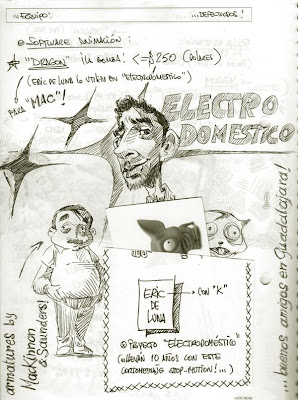 ¡¡EQUIPO:
DEFECTUOSOS!
⊙ SOFTWARE D'ANIMACIÓN:
★ "DRAGON" ¡LA BOMBA! <-$250 (DÓLARES)
(ERIC DE LUNA LO UTILIZA EN "ELECTRODOMÉSTICO")
PARA "MAC"!
ELECTRO
DOMESTICO
ERIC
DE
LUNA
→ CON "K"
⊙ PROYECTO "ELECTRODOMÉSTICO"
(¡LLEVAN 10 AÑOS CON ESTE
CORTOMETRAJE STOP-MOTION!...)
armatures by
MacKinnon
& Saunders!
...buenos amigos en Guadalajara!